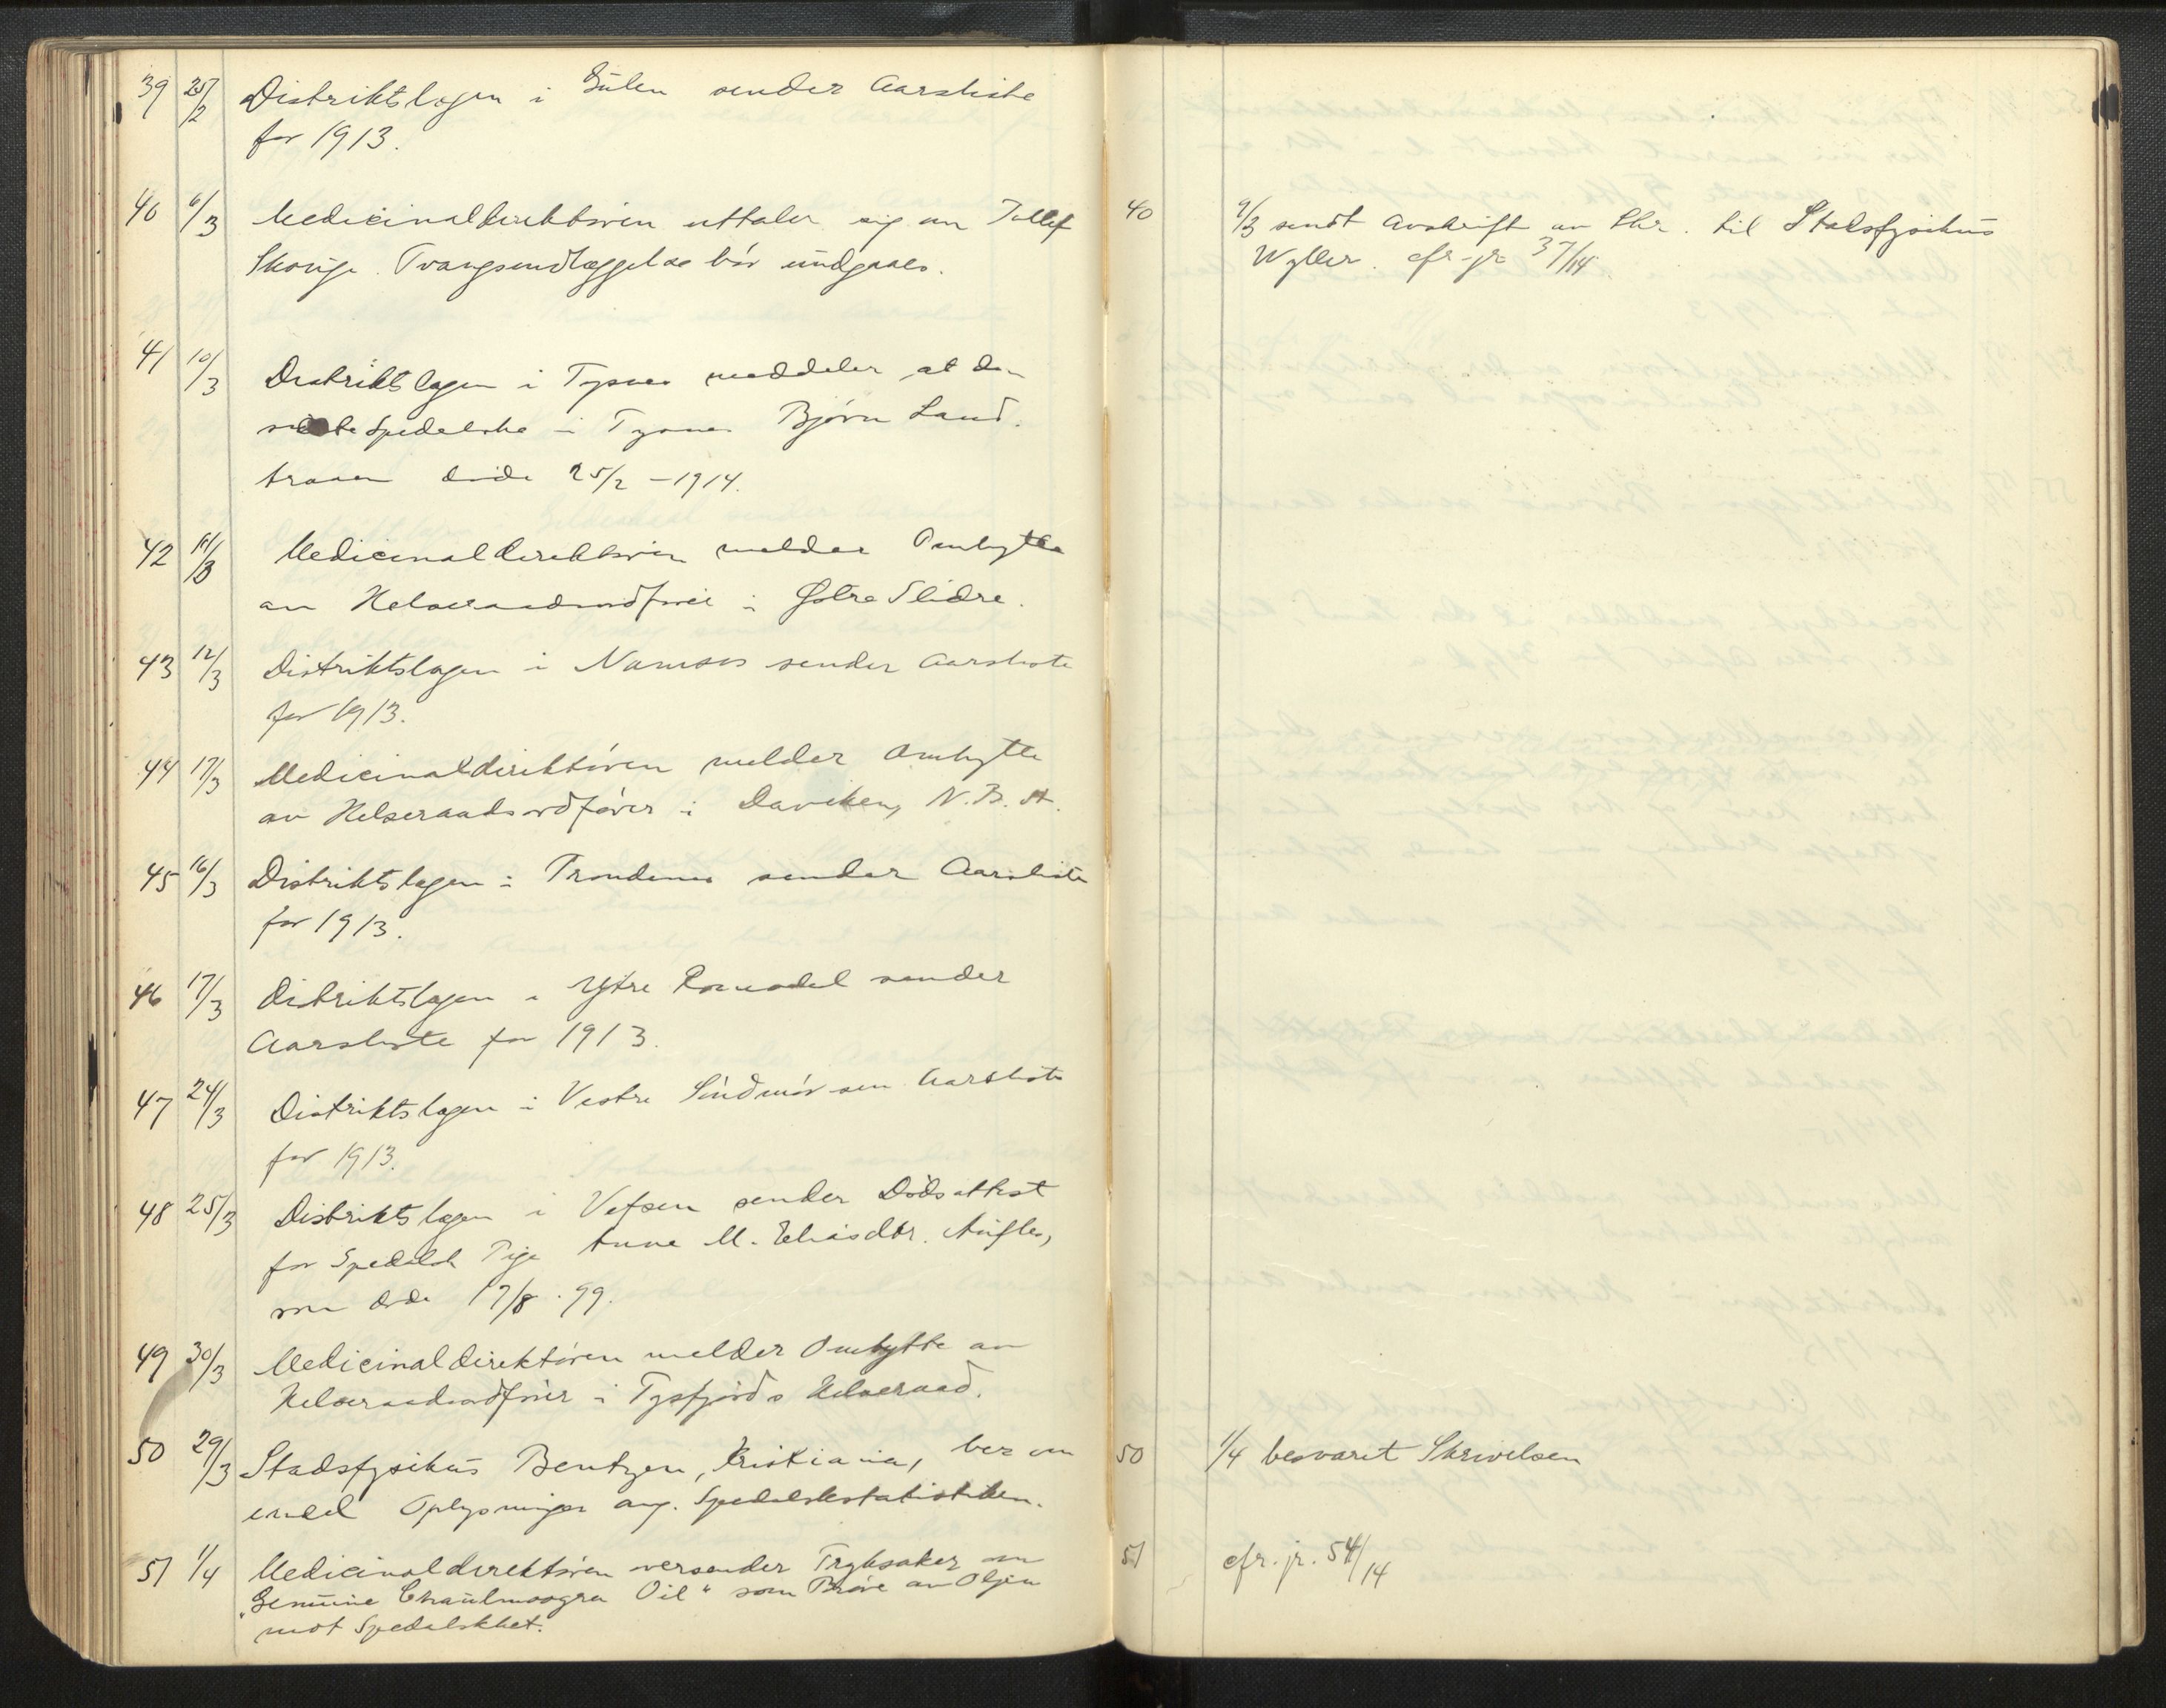 39 25/2 Distriktslægen i Gulen sender Aarsliste
for 1913.
40 6/3 Medicinaldirektøren uttaler sig om Tellef
Skorge. Tvangsindlæggelse bør undgaaes.
41 10/3 Distriktslægen i Tysnes meddeler at den
sidste Spedalske i Tysnes Bjørn Land-
traaen døde 25/2 - 1914.
42 11/3 Medicinaldirektøren melder Ombytte
av Helseraadsordfører i Østre Slidre.
43 12/3 Distriktslægen i Namsos sender Aarsliste
for 1913.
44 17/3 Medicinaldirektøren melder Ombytte
av Helseraadsordfører i Daviken, N. B. A.
45 16/3 Distriktslægen i Trondenes sender Aarsliste
for 1913.
46 17/3 Distriktslægen i Ytre Romsdal sender
Aarsliste for 1913.
47 24/3 Distriktslægen i Vestre Søndmør sen Aarsliste
for 1913.
48 25/3 Distriktslægen i Vefsen sender Dødsattest
for Spedalsk Pige Anne M. Eliasdtr.
som døde 17/8 . 99.
49 30/3 Medicinaldirektøren melder Ombytte av
Helseraadsordfører i Tysfjords Helseraad.
50 29/3 Stadsfysikus Bentzen, Kristiania, ber om
endel Oplysninger ang. Spedalskstatistiken.
51 1/4 Medicinaldirektøren versender Tryksaker om
"Genuine Chaulmoogra Oil" som Prøve av Oljen
mot Spedalskhet.
40 9/3 sendt Avskrift av Skr. til Stadsfysikus
Wyller. cfr. jr. 37/14.
50 1/4 besvaret Skrivelsen
51 cfr. jr. 54/14